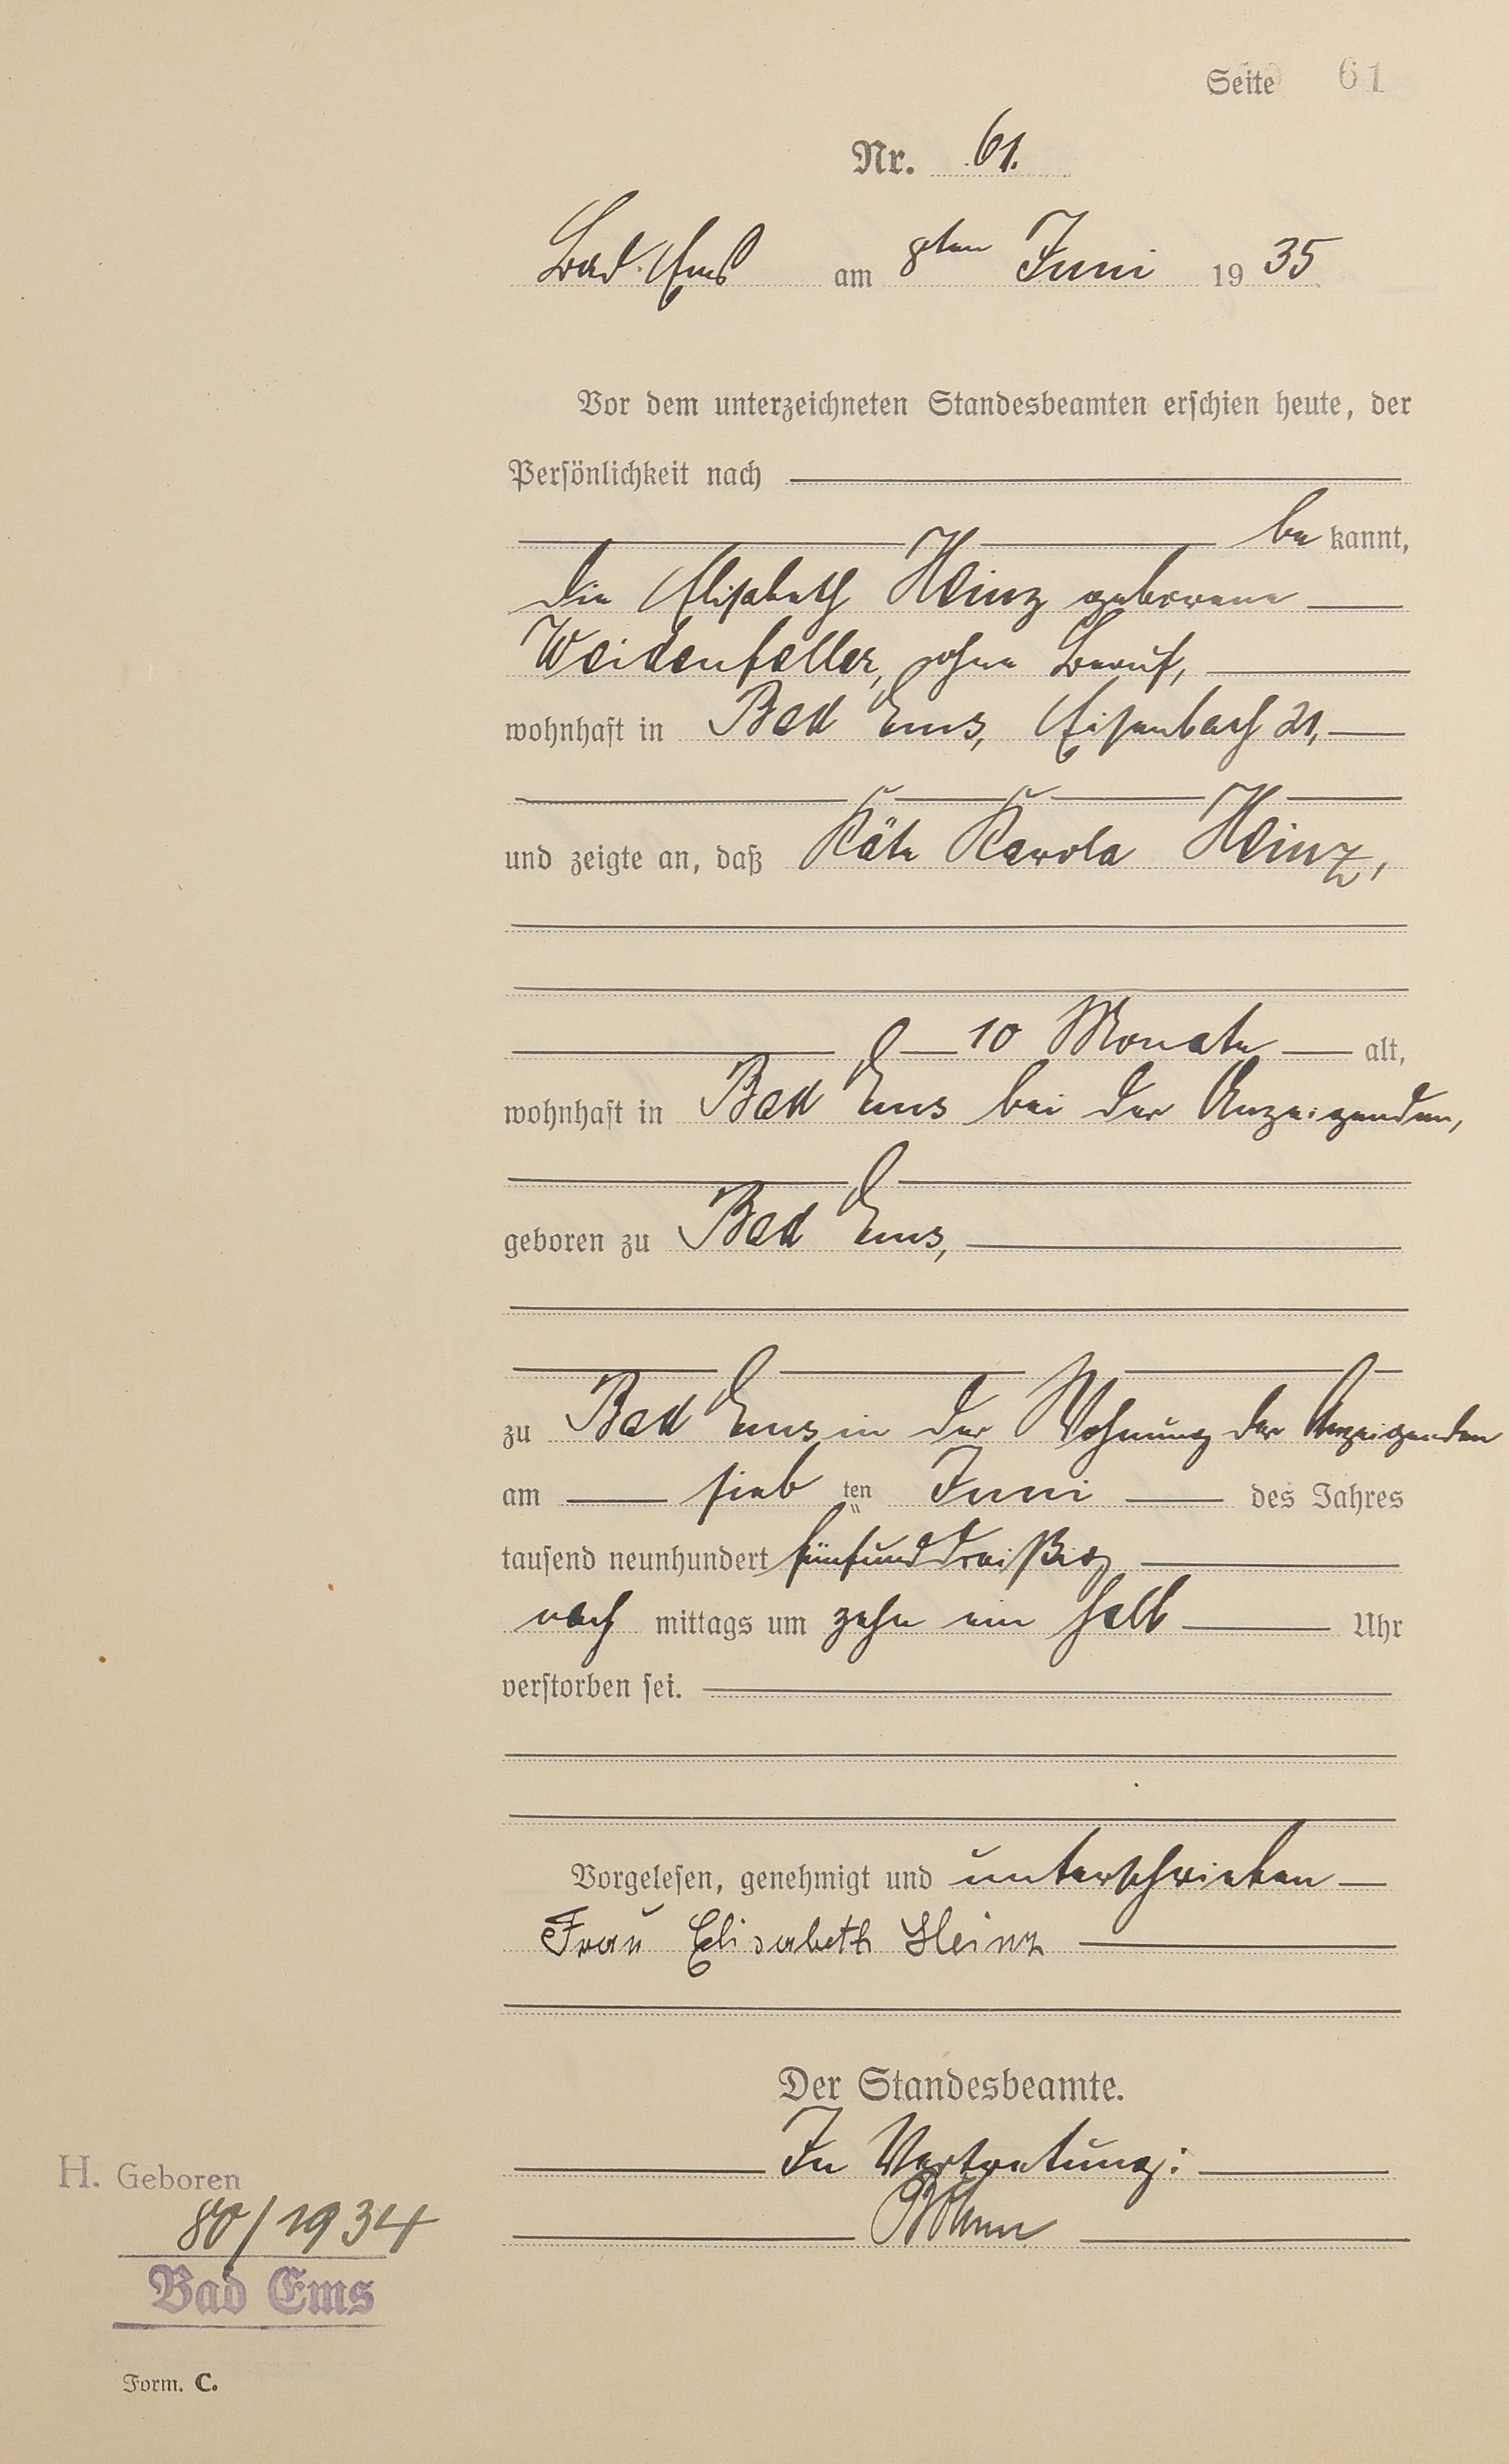 Seite 61
Nr. 61.
Bad Ems am 8ten Juni 1935
Vor dem unterzeichneten Standesbeamten erschien heute, der
Persönlichkeit nach
bekannt,
die Elisabeth Heinz geborene
Weidenfeller, ohne Beruf,
wohnhaft in Bad Ems, Eisenbach 21,
und zeigte an, daß Käte Karola Heinz,
10 Monate alt,
wohnhaft in Bad Ems bei der Anzeigenden,
geboren zu Bad Ems,
zu Bad Ems in der Wohnung der Anzeigenden
am siebten Juni des Jahres
tausend neunhundert fünfunddreißig
nach mittags um zehn ein halb Uhr
verstorben sei.
Vorgelesen, genehmigt und unterschrieben
Frau Elisabeth Heinz
Der Standesbeamte.
In Vertretung:
H. Geboren
80/1934
Bad Ems
Form. C.